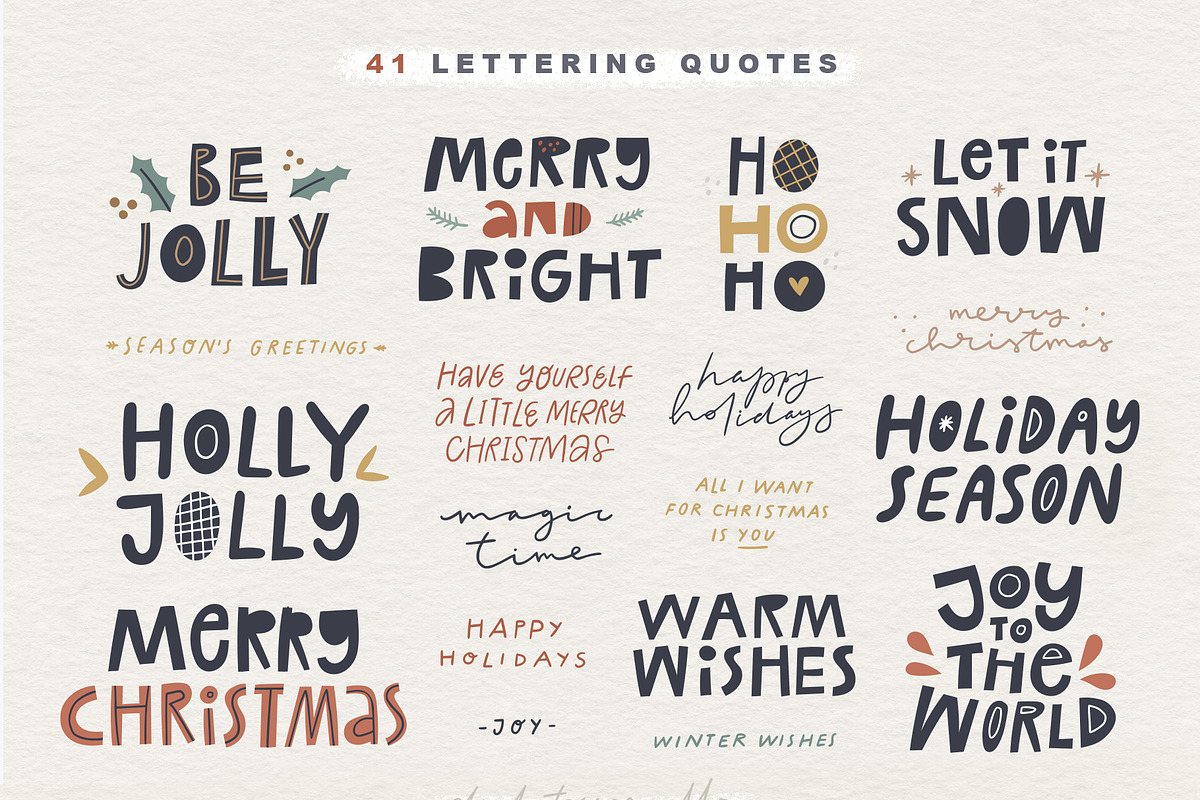 41 LETTERING QUOTES
BE
JOLLY
MERRY
AND
BRIGHT
HO
HO
HO
LET IT
SNOW
SEASON'S GREETINGS
HAVE YOURSELF
A LITTLE MERRY
CHRISTMAS
happy
holidays
merry
christmas
HOLLY
JOLLY
magic
time
ALL I WANT
FOR CHRISTMAS
IS YOU
HOLIDAY
SEASON
MERRY
CHRISTMAS
HAPPY
HOLIDAYS
-JOY-
WARM
WISHES
WINTER WISHES
JOY
TO
THE
WORLD